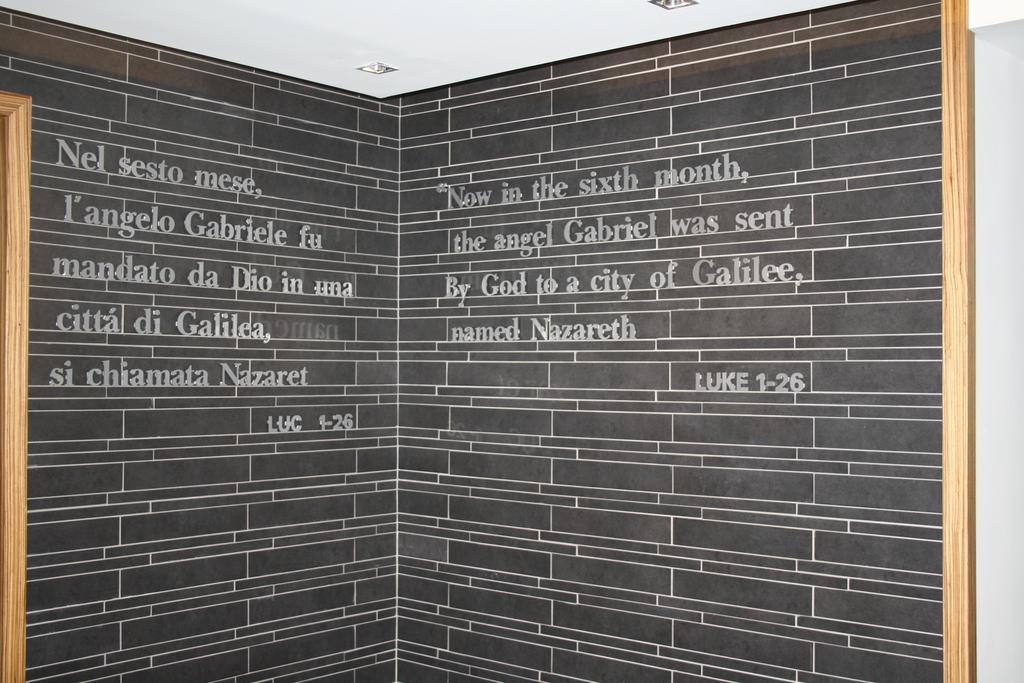 Nel sesto mese,
l'angelo Gabriele fu
mandato da Dio in una
cittá di Galilea,
si chiamata Nazaret
LUC 1-26
“Now in the sixth month,
the angel Gabriel was sent
By God to a city of Galilee,
named Nazareth
LUKE 1-26